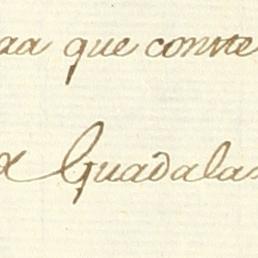 que conste
Guadala